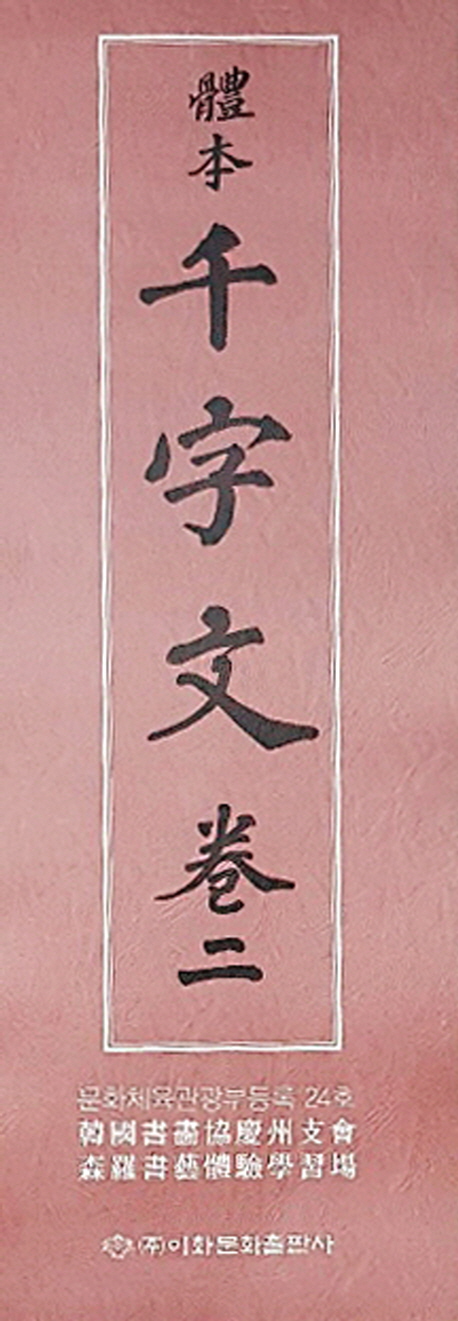 體本
千字文
卷二
문화체육관광부등록 24호
韓國書畵協慶州支會
森羅書藝體驗學習場
(주)이화문화출판사